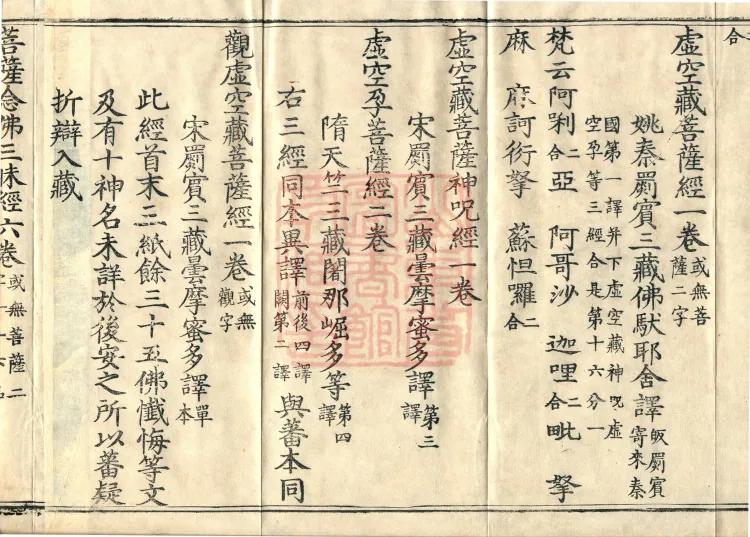 合
虛空藏菩薩經一卷 或無菩薩二字
姚秦罽賓三藏佛馱耶舍譯 皈罽賓寄來秦
國第一譯并下虛空藏神呪虛
空孕等三經合是第十六分一
梵云阿剁二合亞 阿哥沙 迦哩二合毗 拏
麻 庥訶衍拏 蘇怛囉二合
虛空藏菩薩神呪經一卷
宋罽賓三藏曇摩蜜多譯 第三譯
虛空孕菩薩經二卷
隋天竺三藏闍那崛多等譯 第四譯
右三經同本異譯 前後四譯闕第二譯 與蕃本同
觀虛空藏菩薩經一卷 或無觀字
宋罽賓三藏曇摩蜜多譯 單本
此經首末三紙餘三十五佛懺悔等文
及有十神名未詳於後安之所以蕃疑
折辯入藏
菩薩念佛三昧經六卷 或無菩薩二